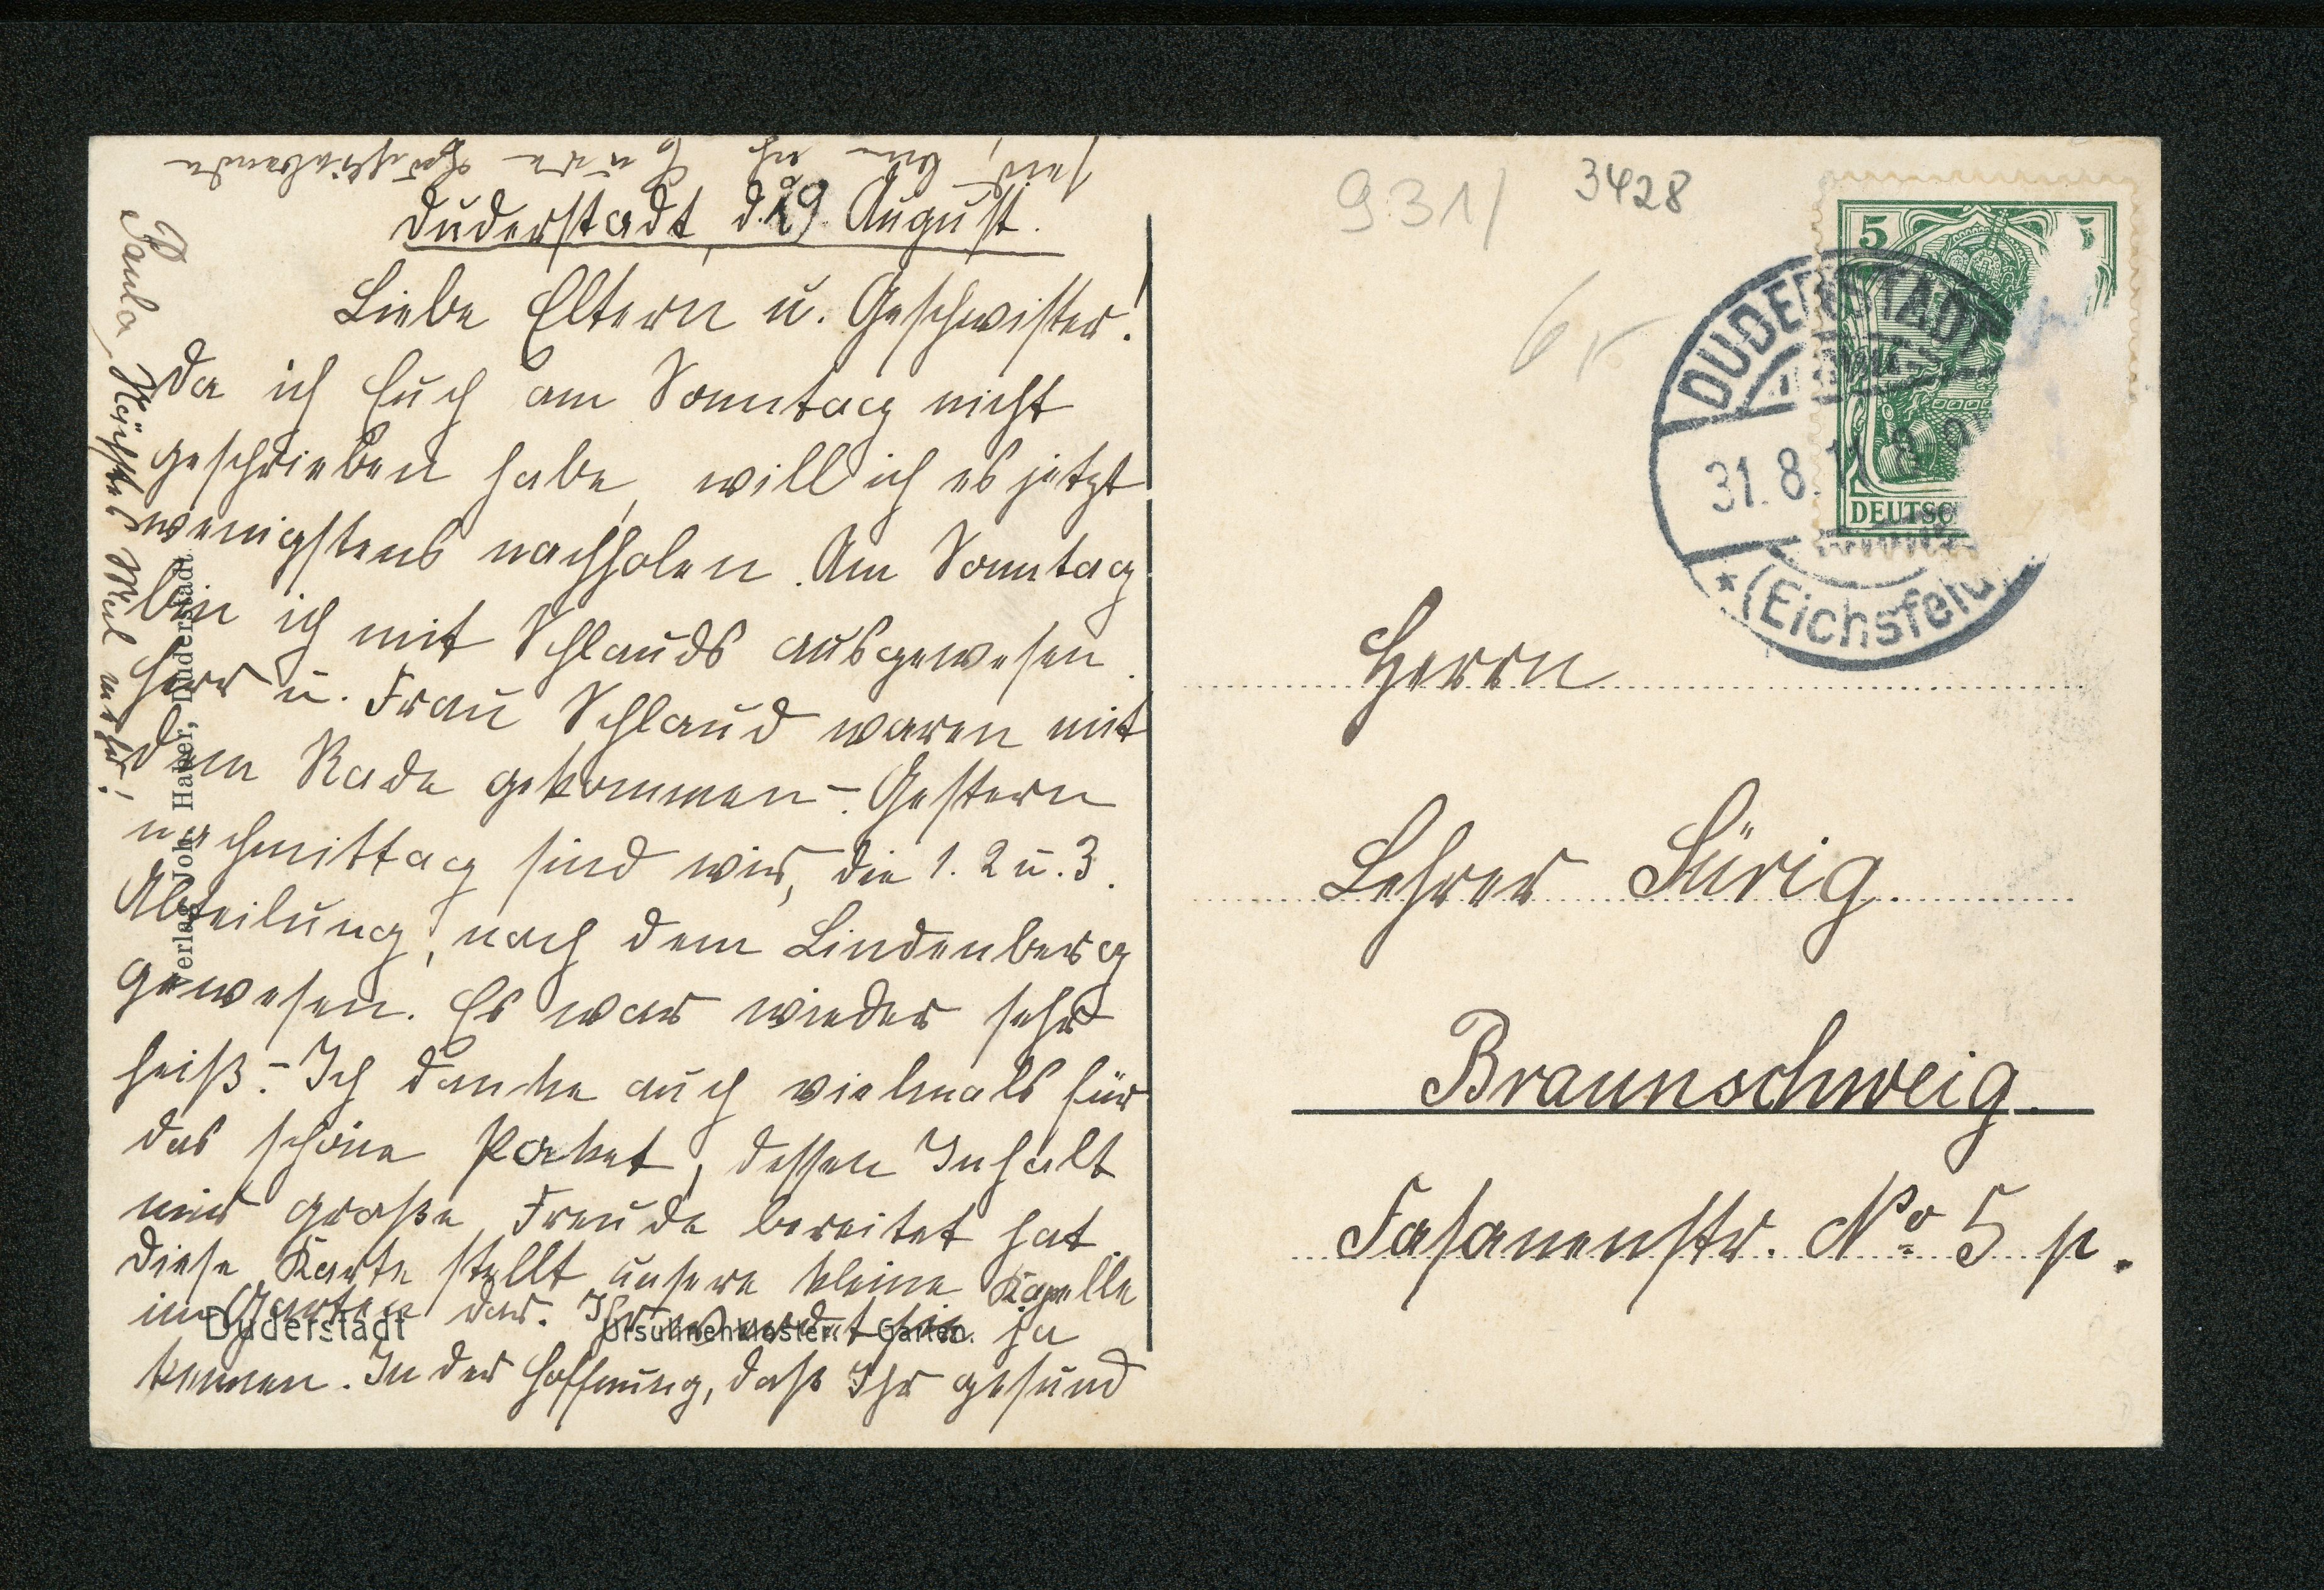 Duderstadt, d. 29. August.
Liebe Eltern u. Geschwister!
Da ich Euch am Sonntag nicht
geschrieben habe, will ich es jetzt
wenigstens nachholen. Am Sonntag
bin ich mit Schlauds ausgewesen.
Herr u. Frau Schlaud waren mit
dem Rade gekommen. – Gestern
nachmittag sind wir, die 1. 2 u. 3.
Abteilung, nach dem Lindenberg
gewesen. Es war wieder sehr
heiß. – Ich danke auch vielmals für
das schöne Paket, dessen Inhalt
mir große Freude bereitet hat
Diese Karte stellt unsere kleine Kapelle
im Garten dar. Ihr werdet sie ja
kennen. In der Hoffnung, daß Ihr gesund
seid, bin ich Eure
Paula, Nächstes Mal mehr!
Verlag Joh. Hater, Duderstadt.
Duderstadt Ursulinenkloster. Garten.
931/
3428
5
DEUTSC
DUDERSTADT
31.8.11
* (Eichsfeld)
Herrn
Lehrer Sürig.
Braunschweig.
Fasanenstr. No 5 p.